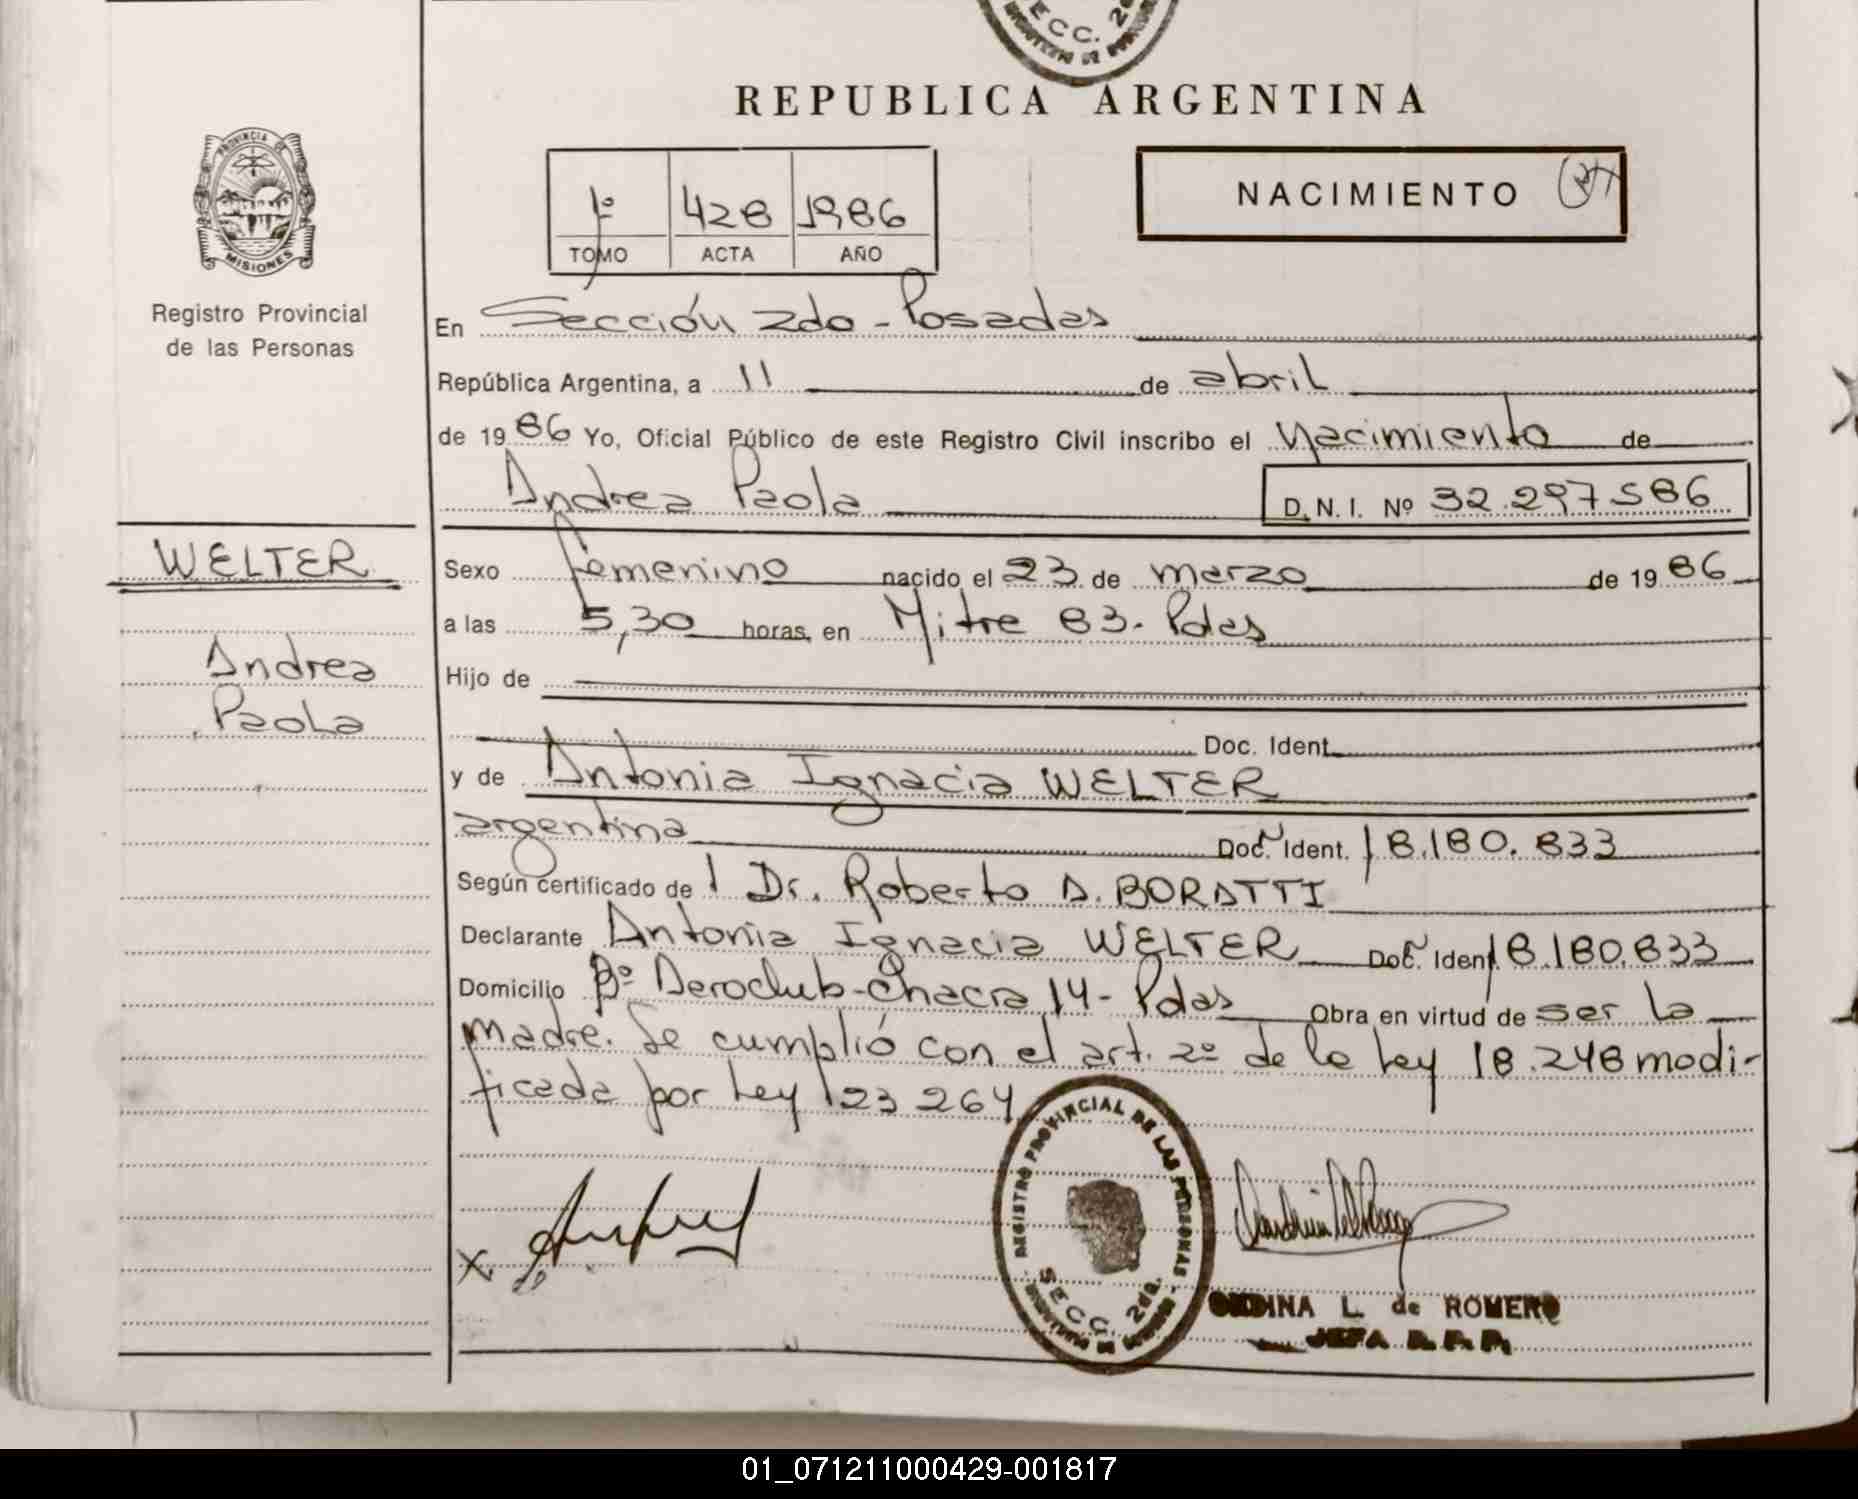 SECC. 2
REPUBLICA ARGENTINA
PROVINCIA DE
MISIONES
Registro Provincial
de las Personas
1º 428 1986
TOMO ACTA AÑO
NACIMIENTO
En Sección 2da - Posadas
República Argentina, a 11 de abril
de 1986 Yo, Oficial Público de este Registro Civil inscribo el Nacimiento de
Andrea Paola D.N.I. Nº 32.297.586
WELTER
Andrea
Paola
Sexo femenino nacido el 23 de marzo de 1986
a las 5,30 horas, en Mitre 83 - Pdas
Hijo de
Doc. Ident.
y de Antonia Ignacia WELTER
argentina Doc. Ident. 18.180.833
Según certificado de l Dr. Roberto A. BORATTI
Declarante Antonia Ignacia WELTER Doc. Ident. 18.180.833
Domicilio Bº Aeroclub - Chacra 14 - Pdas Obra en virtud de ser la
madre. Se cumplió con el art. 2º de la Ley 18.248 modi-
ficada por Ley 23264
REGISTRO PROVINCIAL DE LAS PERSONAS
SECC. 2da.
X
L. de ROMERO
JEFA R.P.P.
01_071211000429-001817